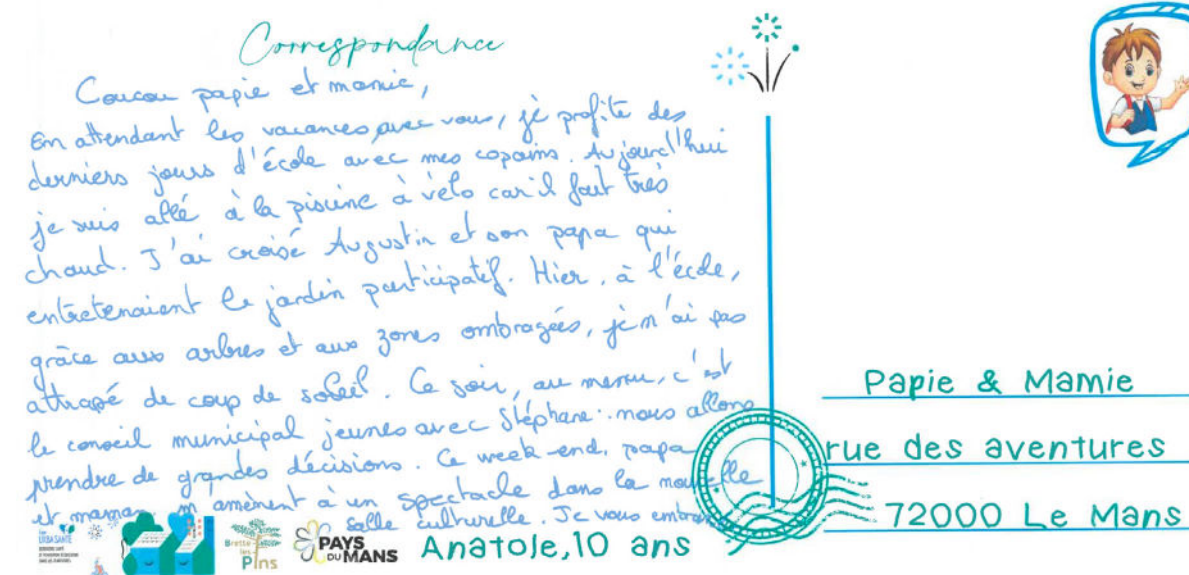 Correspondance
Coucou papie et mamie,
En attendant les vacances avec vous, je profite des
derniers jours d'école avec mes copains. Aujourd'hui
je suis allé à la piscine à vélo car il fait très
chaud. J'ai croisé Augustin et son papa qui
entretenaient le jardin participatif. Hier, à l'école,
grâce aux arbres et aux zones ombragées, je n'ai pas
attrapé de coup de soleil. Ce soir, au menu, c'est
le conseil municipal jeunes avec Stéphane : nous allons
prendre de grandes décisions. Ce week-end, papa
et maman m'amènent à un spectacle dans la nouvelle
salle culturelle. Je vous
Anatole, 10 ans
Papie & Mamie
rue des aventures
72000 Le Mans
URBA SANTÉ
Brette
les
Pins
PAYS
DU MANS